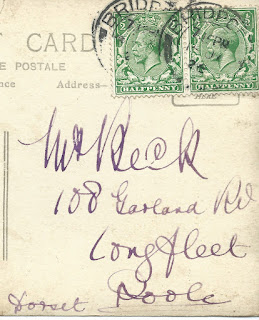 T CARD
E POSTALE
nce Address
BRID
HALFPENNY HALFPENNY
HERE
Mr Peck
108 Garland Rd
Longfleet
Dorset Poole